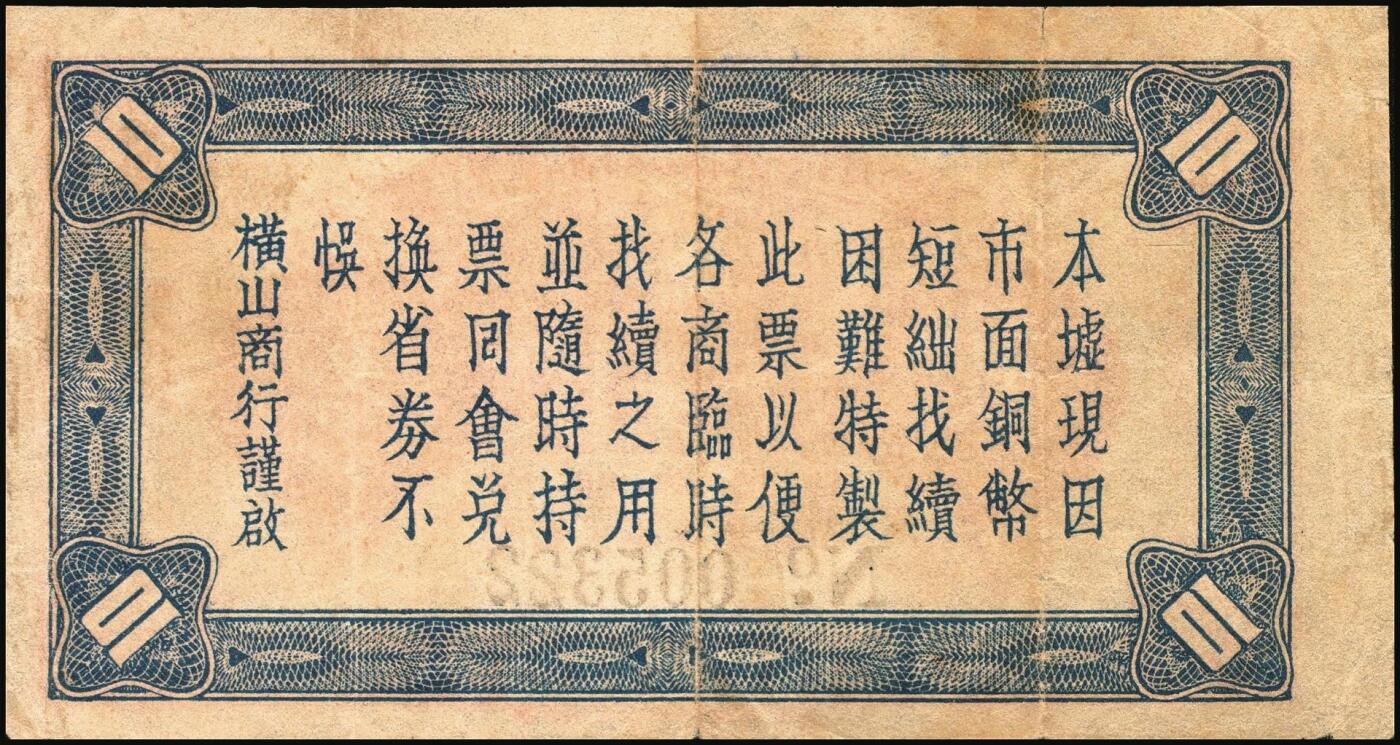 本墟現因
市面銅幣
短絀找續
困難特製
此票以便
各商臨時
找續之用
並隨時持
票同會兑
換省券不
悞
橫山商行謹啟
10
10
10
10
№ 005322